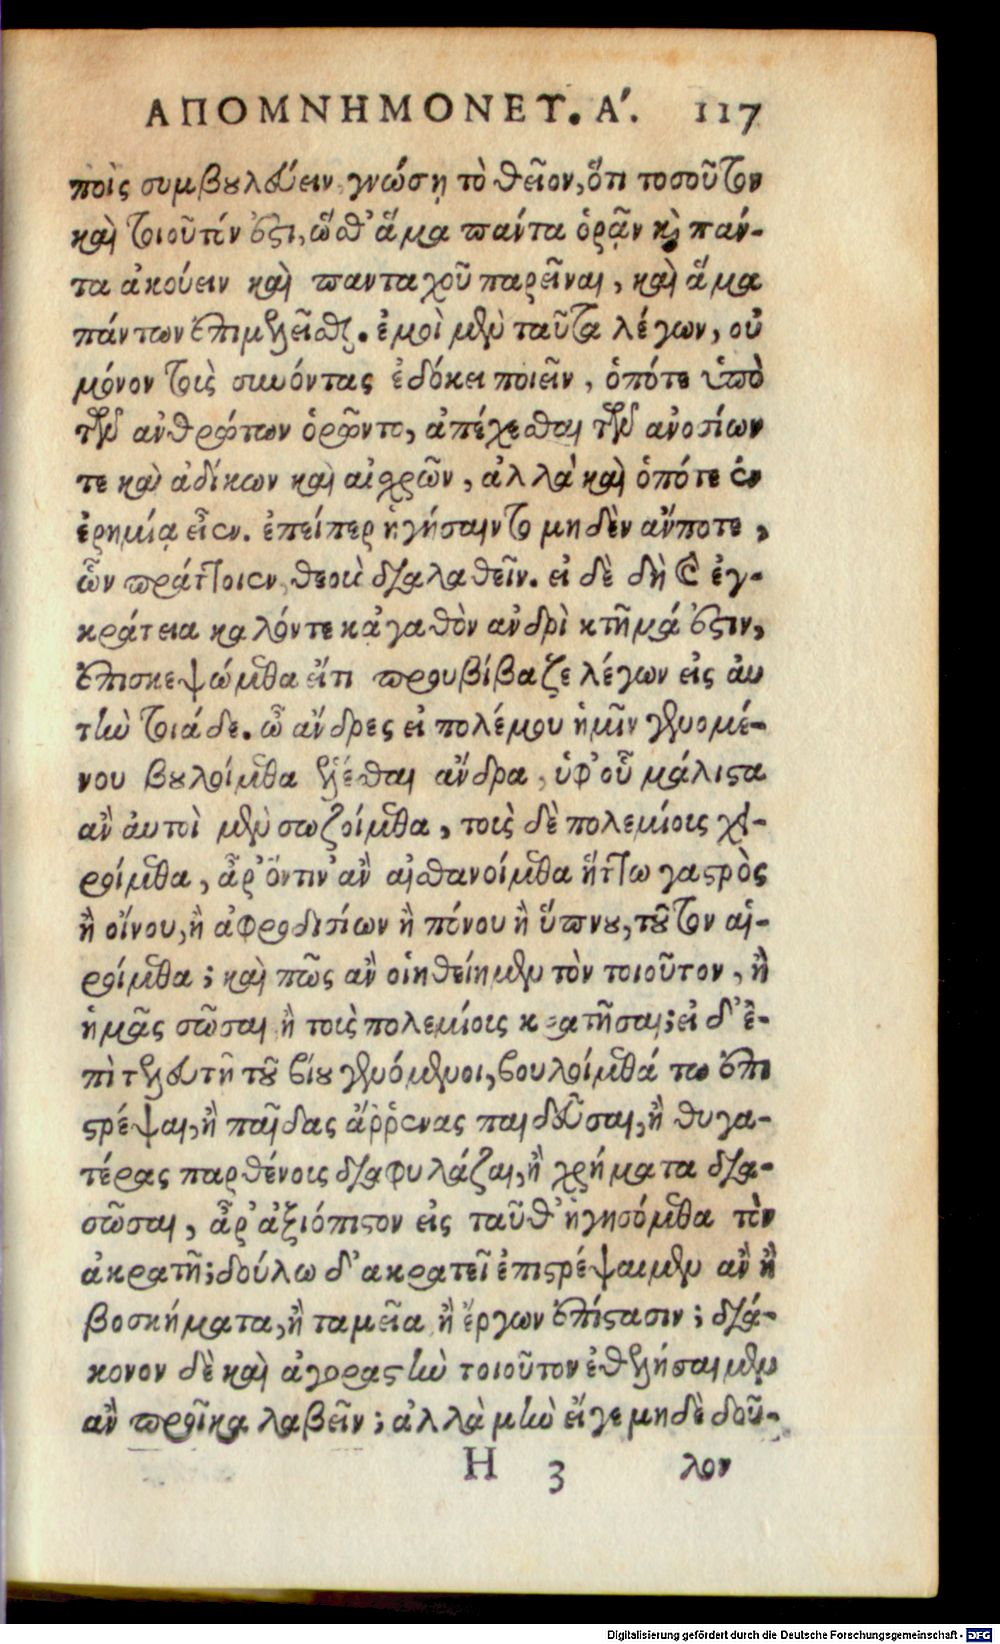 ΑΠΟΜΝΗΜΟΝΕΥ. Α'. 117
ποις συμβουλεύειν, γνώσῃ τὸ θεῖον, ὅτι τοσοῦτον
καὶ τοιοῦτόν ἐστι, ὥσθ' ἅμα πάντα ὁρᾷν καὶ πάν-
τα ἀκούειν καὶ πανταχοῦ παρεῖναι, καὶ ἅμα
πάντων ἐπιμελεῖσθαι. ἐμοὶ μὲν ταῦτα λέγων, οὐ
μόνον τοὺς συνόντας ἐδόκει ποιεῖν, ὁπότε ὑπὸ
τῶν ἀνθρώπων ὁρῷντο, ἀπέχεσθαι τῶν ἀνοσίων
τε καὶ ἀδίκων καὶ αἰσχρῶν, ἀλλὰ καὶ ὁπότε ἐν
ἐρημίᾳ εἶεν. ἐπείπερ ἡγήσαιντο μηδὲν ἄν ποτε,
ὧν πράττοιεν, θεοὺς διαλαθεῖν. εἰ δὲ δὴ καὶ ἐγ-
κράτεια καλόν τε κἀγαθὸν ἀνδρὶ κτῆμά ἐστιν,
ἐπισκεψώμεθα εἴ τι προυβίβαζε λέγων εἰς αὐ
τὴν τοιάδε. ὦ ἄνδρες εἰ πολέμου ἡμῖν γενομέ-
νου βουλοίμεθα ἑλέσθαι ἄνδρα, ὑφ' οὗ μάλιστα
ἂν αὐτοὶ μὲν σωζοίμεθα, τοὺς δὲ πολεμίους χει-
ροίμεθα, ἆρ' ὅντιν' ἂν αἰσθανοίμεθα ἥττω γαστρὸς
ἢ οἴνου, ἢ ἀφροδισίων ἢ πόνου ἢ ὕπνου, τοῦτον αἱ-
ροίμεθα; καὶ πῶς ἂν οἰηθείημεν τὸν τοιοῦτον, ἢ
ἡμᾶς σῶσαι ἢ τοὺς πολεμίους κρατῆσαι; εἰ δ' ἐ-
πὶ τελευτῇ τοῦ βίου γενόμενοι, βουλοίμεθά τῳ ἐπι
τρέψαι, ἢ παῖδας ἄῤῥενας παιδεῦσαι, ἢ θυγα-
τέρας παρθένους διαφυλάξαι, ἢ χρήματα δια-
σῶσαι, ἆρ' ἀξιόπιστον εἰς ταῦθ' ἡγησόμεθα τὸν
ἀκρατῆ; δούλῳ δ' ἀκρατεῖ ἐπιτρέψαιμεν ἂν ἢ
βοσκήματα, ἢ ταμεῖα ἢ ἔργων ἐπίστασιν; διά-
κονον δὲ καὶ ἀγοραστὴν τοιοῦτον ἐθελήσαιμεν
ἂν προῖκα λαβεῖν; ἀλλὰ μὴν εἴγε μηδὲ δοῦ-
H 3 λον
Digitalisierung gefördert durch die Deutsche Forschungsgemeinschaft - DFG